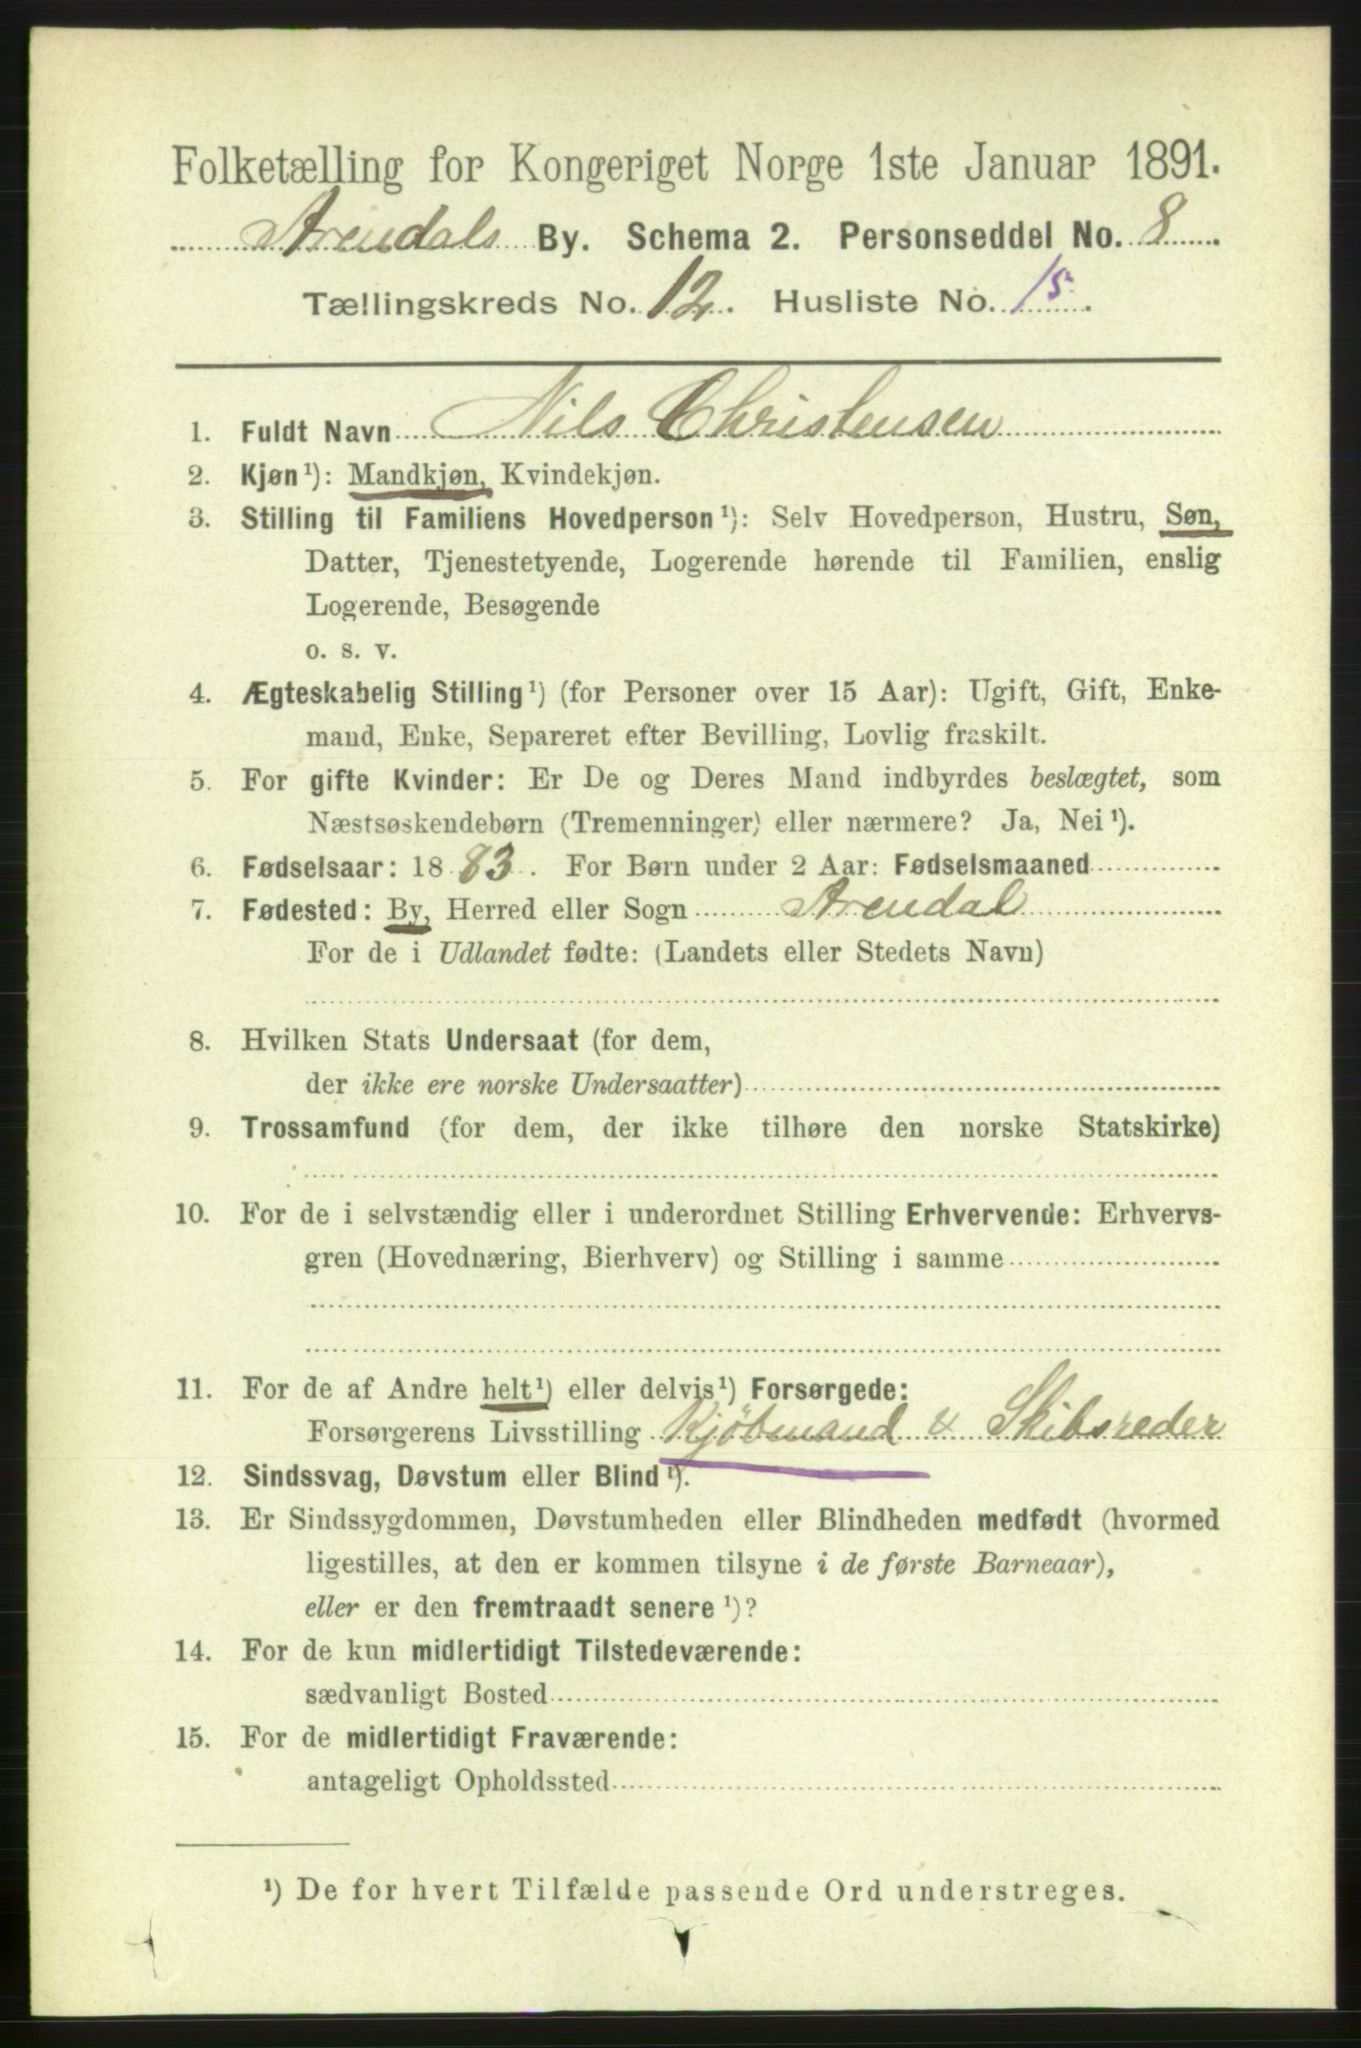 Folketælling for Kongeriget Norge 1ste Januar 1891.
Arendals By. Schema 2. Personseddel No. 8
Tællingskreds No. 12. Husliste No. 15.
1. Fuldt Navn Nils Christensen
2. Kjøn¹): Mandkjøn, Kvindekjøn.
3. Stilling til Familiens Hovedperson¹): Selv Hovedperson, Hustru, Søn,
Datter, Tjenestetyende, Logerende hørende til Familien, enslig
Logerende, Besøgende
o. s. v.
4. Ægteskabelig Stilling¹) (for Personer over 15 Aar): Ugift, Gift, Enke-
mand, Enke, Separeret efter Bevilling, Lovlig fraskilt.
5. For gifte Kvinder: Er De og Deres Mand indbyrdes beslægtet, som
Næstsøskendebørn (Tremenninger) eller nærmere? Ja, Nei¹).
6. Fødselsaar: 1883. For Børn under 2 Aar: Fødselsmaaned
7. Fødested: By, Herred eller Sogn Arendal
For de i Udlandet fødte: (Landets eller Stedets Navn)
8. Hvilken Stats Undersaat (for dem,
der ikke ere norske Undersaatter)
9. Trossamfund (for dem, der ikke tilhøre den norske Statskirke)
10. For de i selvstændig eller i underordnet Stilling Erhvervende: Erhvervs-
gren (Hovednæring, Bierhverv) og Stilling i samme
11. For de af Andre helt¹) eller delvis¹) Forsørgede:
Forsørgerens Livsstilling Kjöbmand & Skibsreder
12. Sindssvag, Døvstum eller Blind¹).
13. Er Sindssygdommen, Døvstumheden eller Blindheden medfødt (hvormed
ligestilles, at den er kommen tilsyne i de første Barneaar),
eller er den fremtraadt senere¹)?
14. For de kun midlertidigt Tilstedeværende:
sædvanligt Bosted
15. For de midlertidigt Fraværende:
antageligt Opholdssted
¹) De for hvert Tilfælde passende Ord understreges.